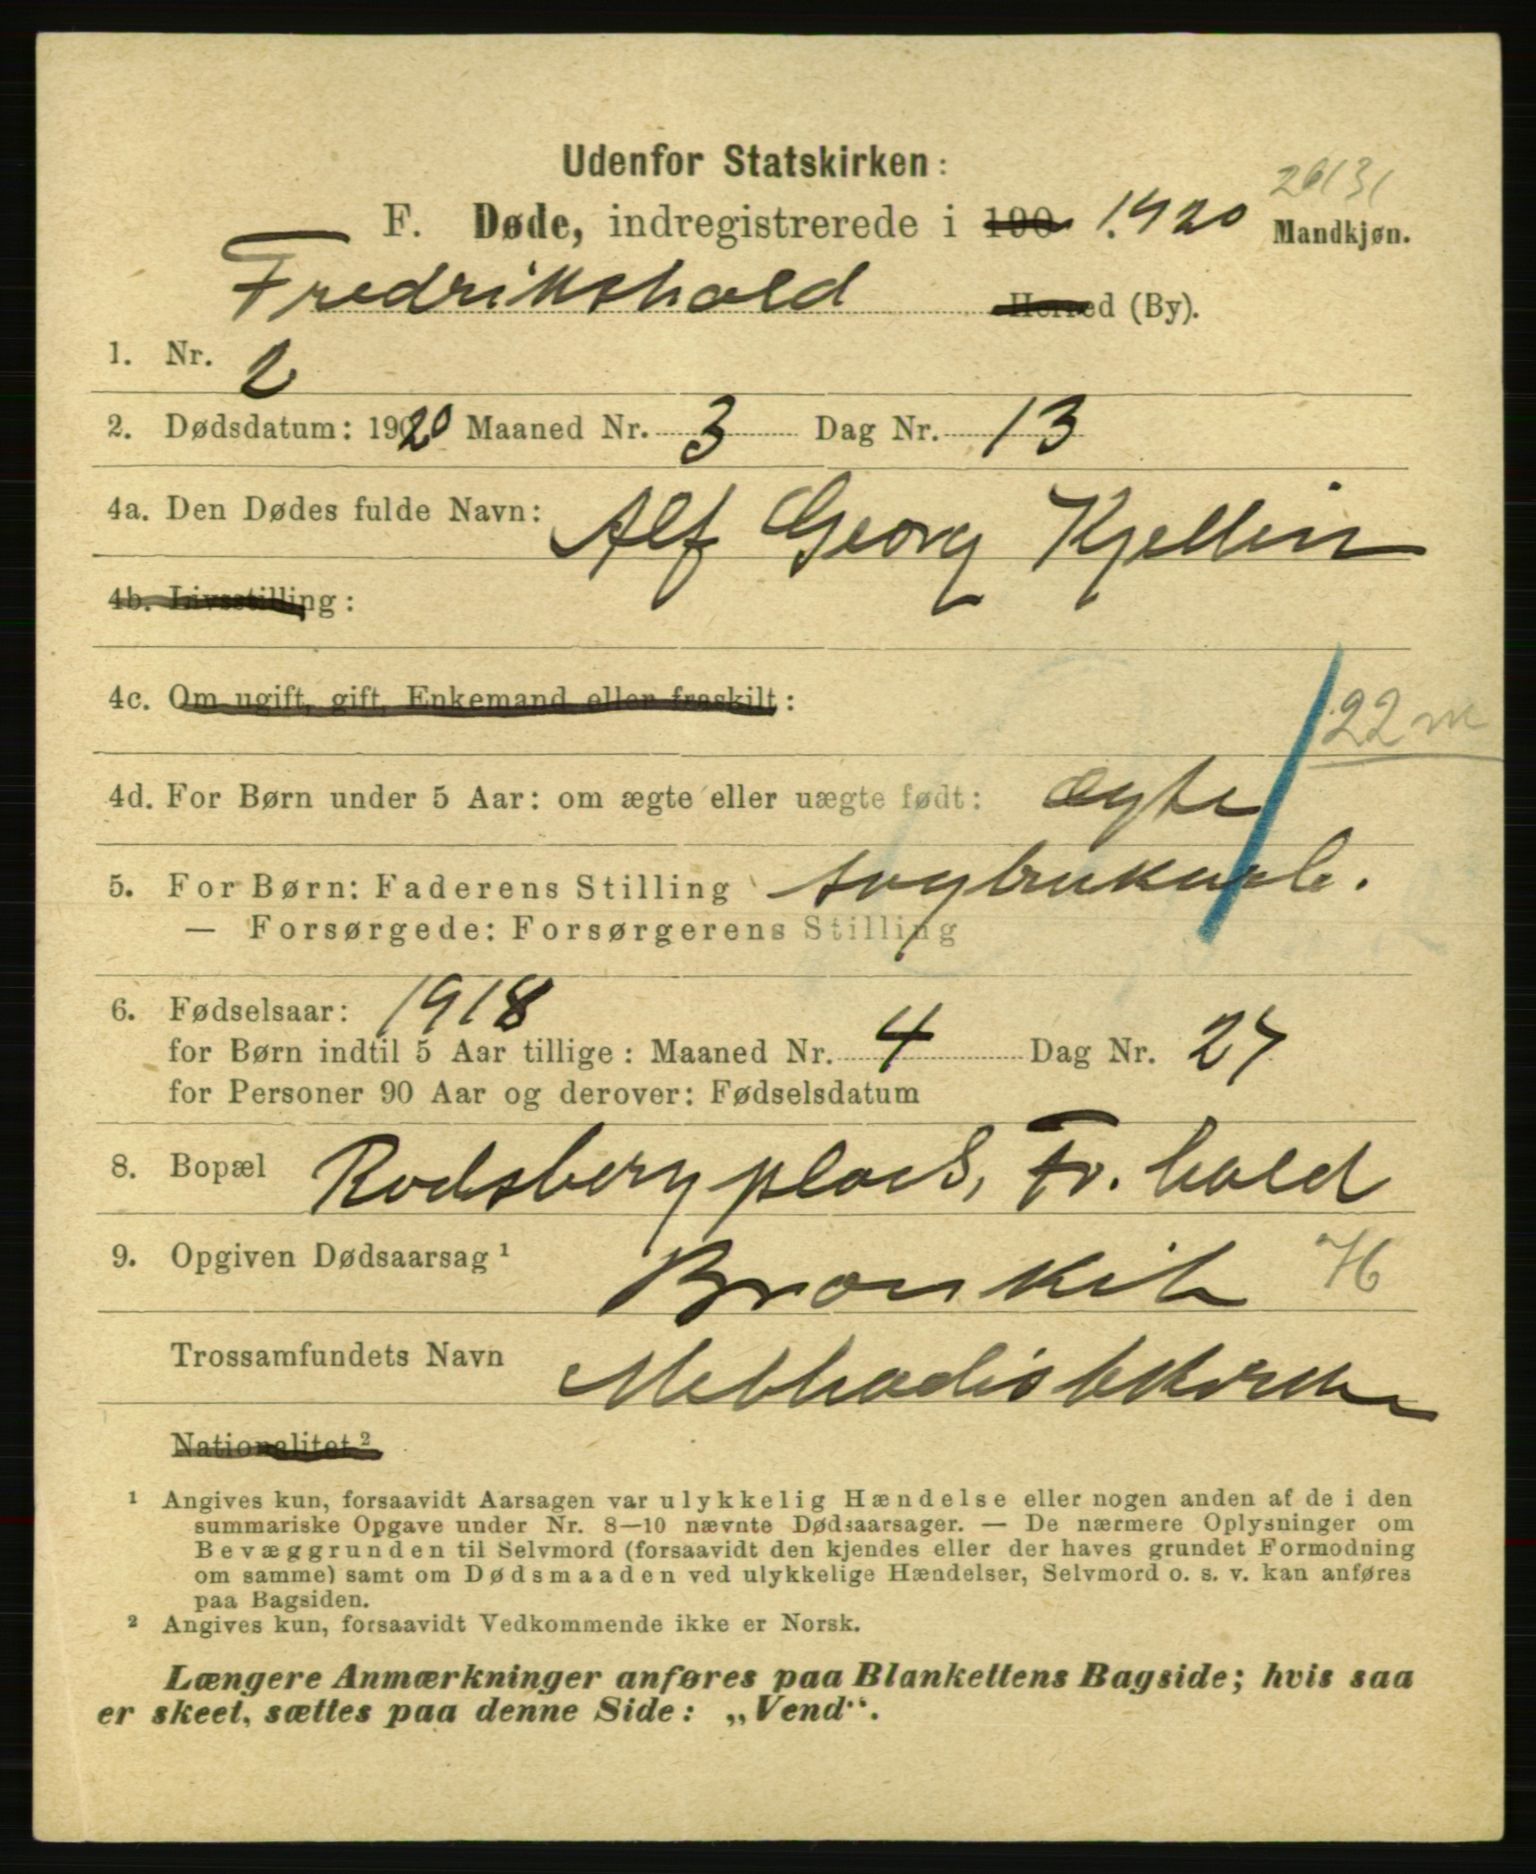 Udenfor Statskirken:
26131
F. Døde, indregistrerede i 190 1920 Mandkjøn.
Fredrikshald Herred (By).
1. Nr. 2
2. Dødsdatum: 1920 Maaned Nr. 3 Dag Nr. 13
4a. Den Dødes fulde Navn: Alf Georg Kjellin
4b. Livsstilling:
4c. Om ugift, gift, Enkemand eller fraskilt:
22 m
4d. For Børn under 5 Aar: om ægte eller uægte født: ægte
5. For Børn: Faderens Stilling
— Forsørgede: Forsørgerens Stilling
6. Fødselsaar: 1918
for Børn indtil 5 Aar tillige: Maaned Nr. 4 Dag Nr. 27
for Personer 90 Aar og derover: Fødselsdatum
8. Bopæl Rødsberg plads, Fr.hald
9. Opgiven Dødsaarsag ¹ Bronkit
Trossamfundets Navn Methodistkirken
Nationalitet ²
¹ Angives kun, forsaavidt Aarsagen var ulykkelig Hændelse eller nogen anden af de i den
summariske Opgave under Nr. 8—10 nævnte Dødsaarsager. — De nærmere Oplysninger om
Bevæggrunden til Selvmord (forsaavidt den kjendes eller der haves grundet Formodning
om samme) samt om Dødsmaaden ved ulykkelige Hændelser, Selvmord o. s. v. kan anføres
paa Bagsiden.
² Angives kun, forsaavidt Vedkommende ikke er Norsk.
Længere Anmærkninger anføres paa Blankettens Bagside; hvis saa
er skeet, sættes paa denne Side: „Vend“.